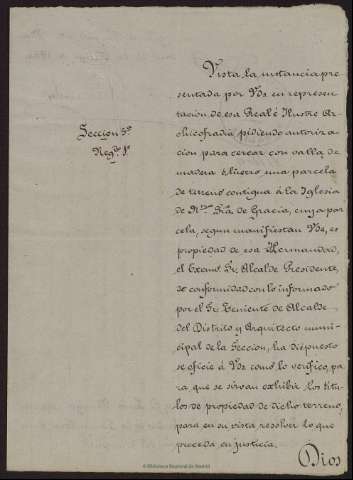 Seccion 5ª
Negdo 1º
Vista la instancia pre
sentada por Vds en represen
tacion de esa Real é Ilustre Ar
chicofradia pidiendo autoriza
cion para cercar con valla de
madera ó hierro una parcela
de terreno contigua á la Iglesia
de Ntra Sra de Gracia, cuya par
cela, segun manifiestan Vds, es
propiedad de esa Hermandad,
el Excmo Sr. Alcalde Presidente,
de conformidad con lo informado
por el Sr Teniente de Alcalde
del Distrito y Arquitecto muni
cipal de la Seccion, ha dispuesto
se oficie á Vds como lo verifico, pa
ra que se sirvan exhibir los titu
los de propiedad de dicho terreno,
para en su vista resolver lo que
proceda en justicia.
Dios
Biblioteca Regional de Madrid